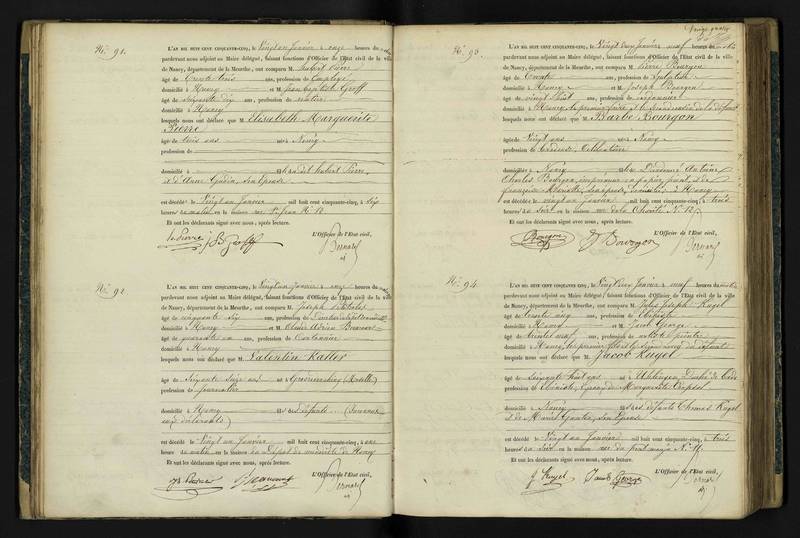 N.° 91.
L'AN MIL HUIT CENT CINQUANTE-CINQ, le Vingt un Janvier à onze heures du matin
pardevant nous adjoint au Maire délégué, faisant fonctions d'Officier de l'Etat civil de la ville
de Nancy, département de la Meurthe, ont comparu M. hubert Pierre
âgé de trente trois ans, profession de Employé
domicilié à Nancy et M. Jean baptiste Groff
âgé de Soixante dix ans, profession de
domicilié à Nancy
lesquels nous ont déclaré que M. Elisabeth Marguerite
Pierre
âgée de trois ans née à Nancy
profession de
domicilié à fille dudit hubert Pierre
et d'Anne Gaudin, son épouse
est décédé le Vingt un Janvier mil huit cent cinquante-cinq, à dix
heures du matin en la maison rue St Jean N.° 12
Et ont les déclarants signé avec nous, après lecture.
L'Officier de l'Etat civil,
J B Groff
Bernard
N.° 92.
L'AN MIL HUIT CENT CINQUANTE-CINQ, le Vingt un Janvier à onze heures du matin
pardevant nous adjoint au Maire délégué, faisant fonctions d'Officier de l'Etat civil de la ville
de Nancy, département de la Meurthe, ont comparu M. Joseph
âgé de cinquante six ans, profession de Directeur du Dépôt de mendicité
domicilié à Nancy et M. Adrien
âgé de quarante un ans, profession de
domicilié à Nancy
lesquels nous ont déclaré que M. Valentin Kaller
âgé de Soixante Seize ans né à (Moselle)
profession de Journalier
domicilié à Nancy fils des défunts (Inconnus
aux déclarants)
est décédé le Vingt un Janvier mil huit cent cinquante-cinq, à une
heure du matin en la maison du Dépôt de mendicité de Nancy
Et ont les déclarants signé avec nous, après lecture.
L'Officier de l'Etat civil,
Bernard
N.° 93.
L'AN MIL HUIT CENT CINQUANTE-CINQ, le Vingt deux Janvier à neuf heures du matin
pardevant nous adjoint au Maire délégué, faisant fonctions d'Officier de l'Etat civil de la ville
de Nancy, département de la Meurthe, ont comparu M. Pierre Bourgon
âgé de trente ans, profession de
domicilié à Nancy et M. Joseph Bourgon
âgé de vingt huit ans, profession de
domicilié à Nancy, le premier frère et le second cousin de la défunte
lesquels nous ont déclaré que M. Barbe Bourgon
âgée de Vingt ans née à Nancy
profession de Brodeuse, Célibataire
domiciliée à Nancy fille de Dieudonné Antoine
Charles Bourgon, imprimeur en papier peint, et de
françoise son épouse, domiciliés à Nancy
est décédée le vingt un Janvier mil huit cent cinquante-cinq, à trois
heures du soir en la maison rue de la Charité N.° 12
Et ont les déclarants signé avec nous, après lecture.
L'Officier de l'Etat civil,
Bourgon
J Bourgon
Bernard
N.° 94.
L'AN MIL HUIT CENT CINQUANTE-CINQ, le Vingt deux Janvier à neuf heures du matin
pardevant nous adjoint au Maire délégué, faisant fonctions d'Officier de l'Etat civil de la ville
de Nancy, département de la Meurthe, ont comparu M. Jules Joseph Kugel
âgé de trente cinq ans, profession de Ebéniste
domicilié à Nancy et M. Jacob George
âgé de trente neuf ans, profession de artiste peintre
domicilié à Nancy, le premier fils et le second neveu du défunt
lesquels nous ont déclaré que M. Jacob Kugel
âgé de soixante huit ans né à Duché de Bade
profession de Ebéniste, époux de Marguerite
domicilié à Nancy fils des défunts Thomas Kugel
et de Marie Ganter, son épouse
est décédé le Vingt un Janvier mil huit cent cinquante-cinq, à trois
heures du soir en la maison rue du pont mouja N.° 11
Et ont les déclarants signé avec nous, après lecture.
L'Officier de l'Etat civil,
J Kugel
Jacob George
Bernard